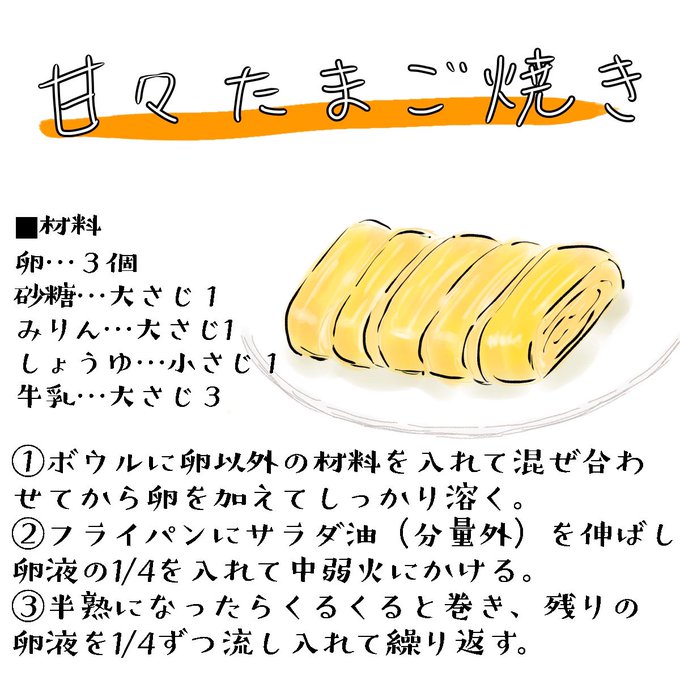 甘々たまご焼き
■材料
卵…３個
砂糖…大さじ１
みりん…大さじ1
しょうゆ…小さじ１
牛乳…大さじ３
①ボウルに卵以外の材料を入れて混ぜ合わ
せてから卵を加えてしっかり溶く。
②フライパンにサラダ油（分量外）を伸ばし
卵液の1/4を入れて中弱火にかける。
③半熟になったらくるくると巻き、残りの
卵液を1/4ずつ流し入れて繰り返す。